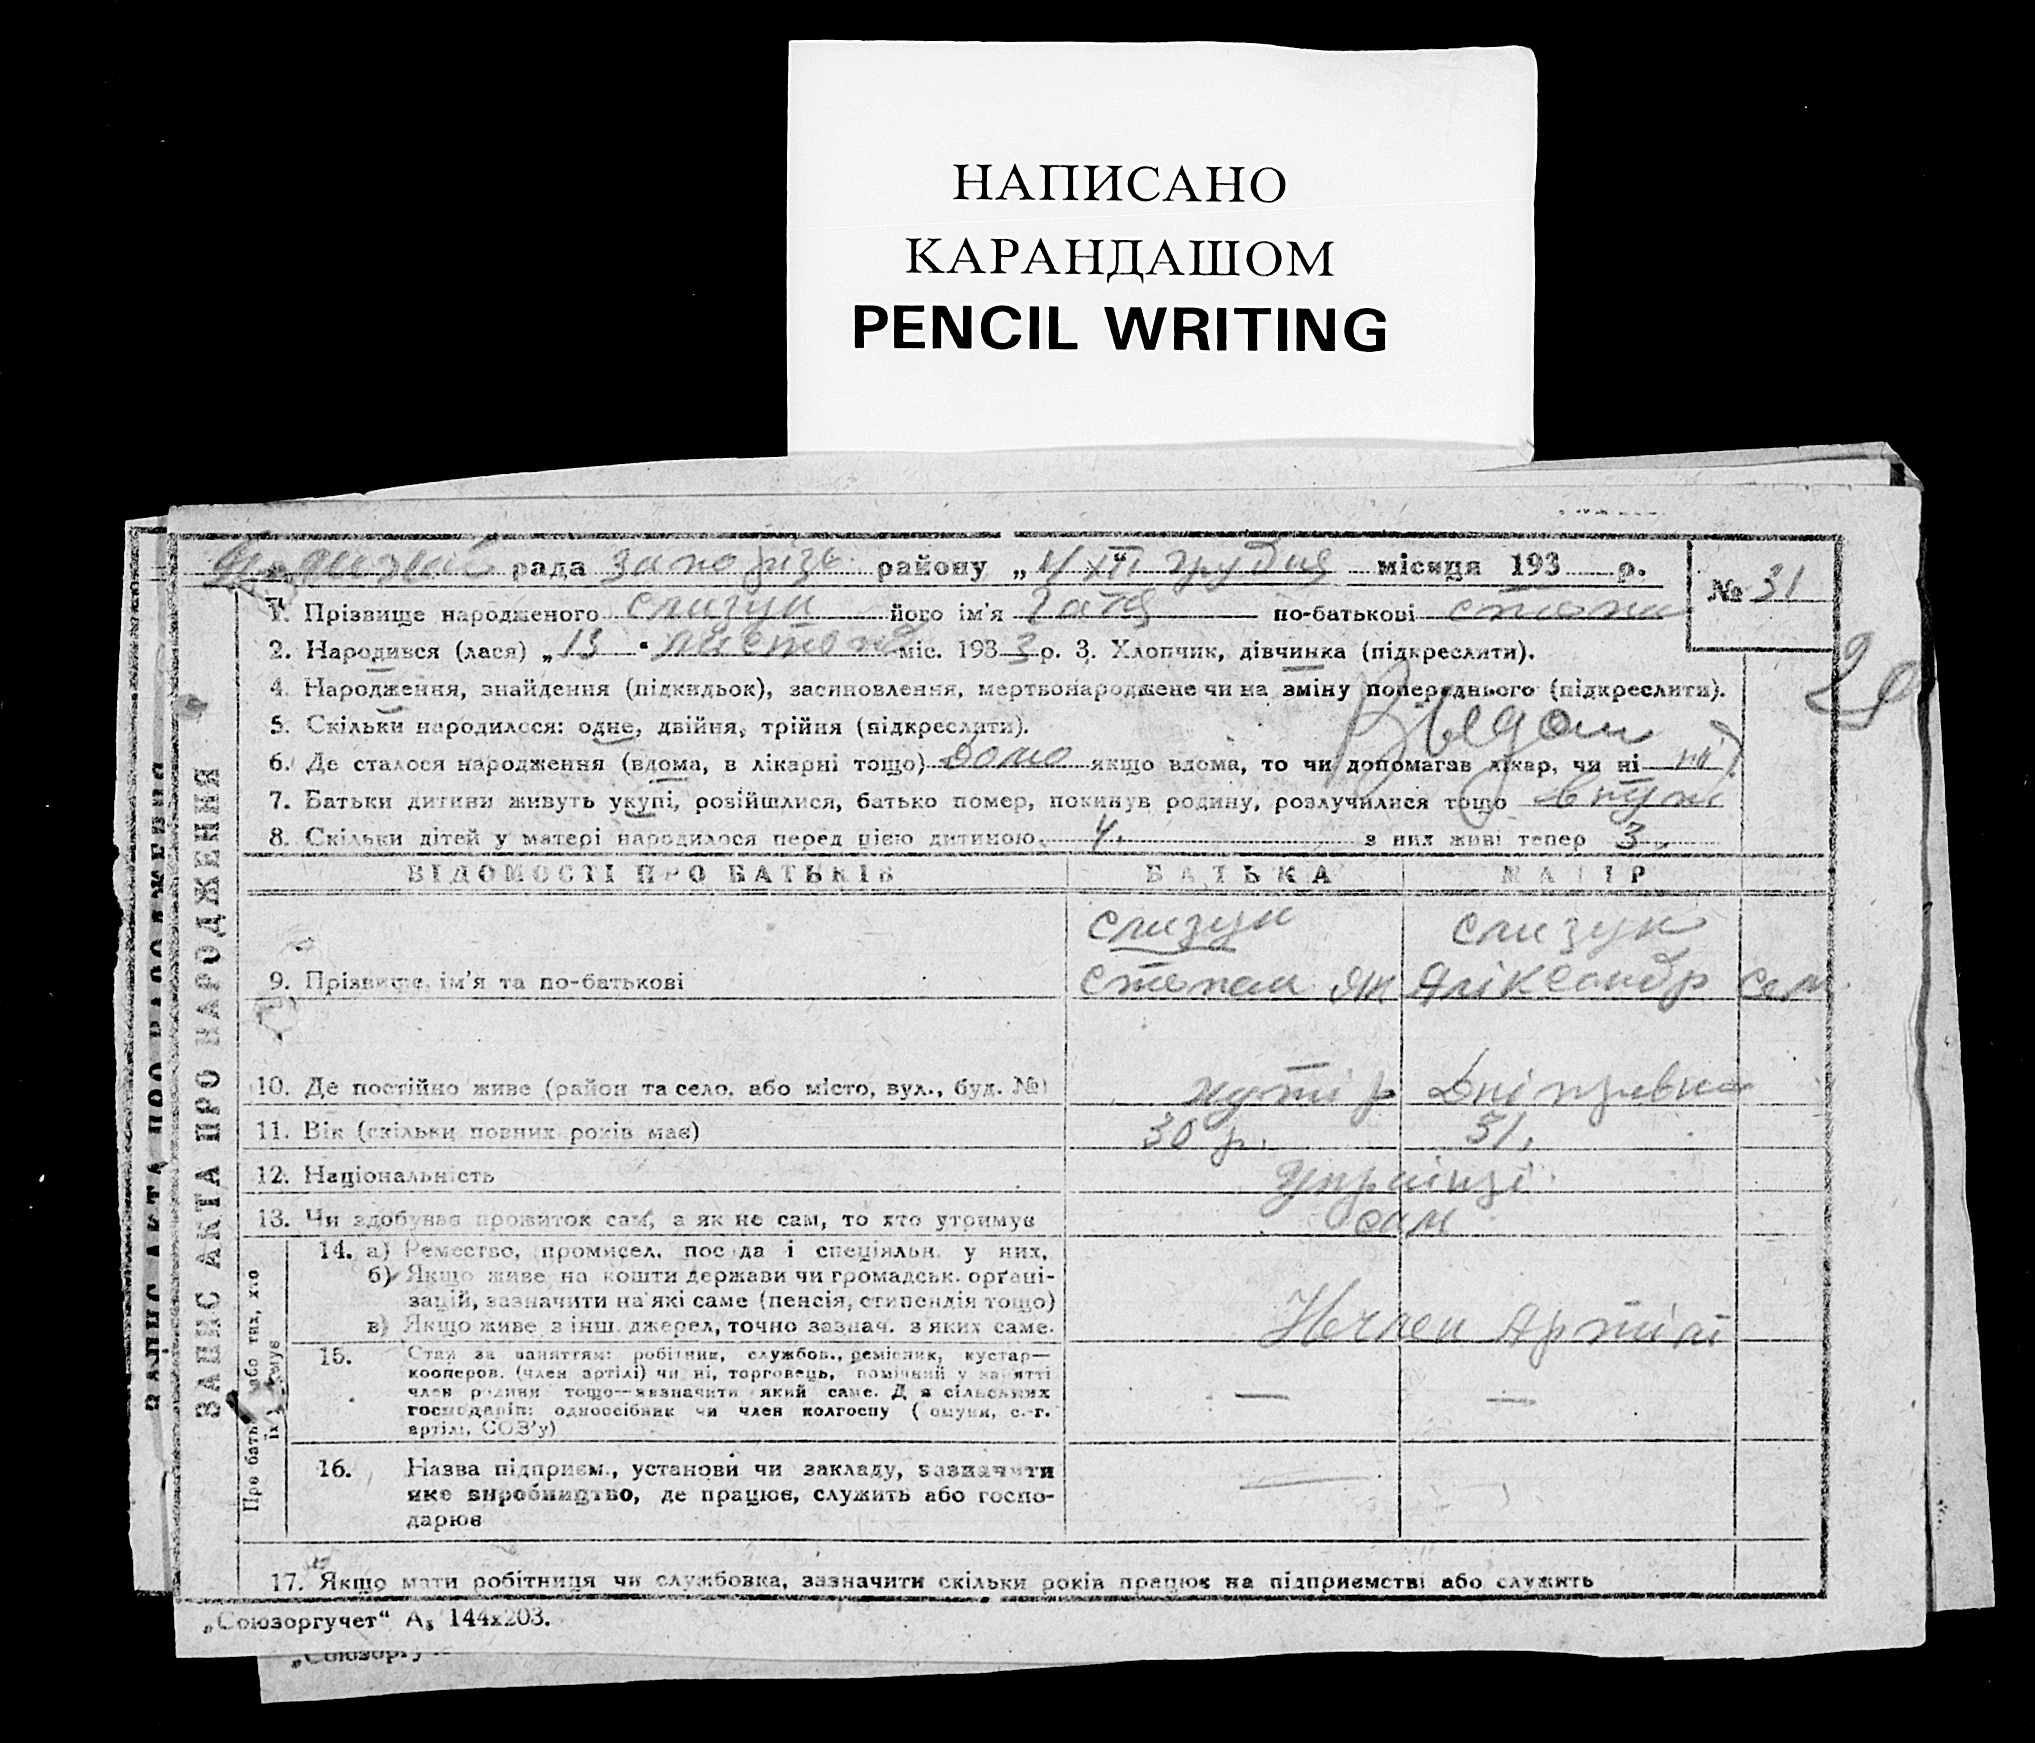 НАПИСАНО
КАРАНДАШОМ
PENCIL WRITING
рада Запорізь району „4 XII грудня місяця 193 р.
№ 31
1. Прізвище народженого Слизун його ім'я Галя по-батькові Степан
2. Народився (лася) „13 " листопа міс. 1933 р. 3. Хлопчик, дівчинка (підкреслити).
4. Народження, знайдення (підкидьок), засиновлення, мертвонароджене чи на зміну попереднього (підкреслити).
5. Скільки народилося: одне, двійня, трійня (підкреслити).
6. Де сталося народження (вдома, в лікарні тощо) дома якщо вдома, то чи допомагав лікар, чи ні ні
7. Батьки дитини живуть укупі, розійшлися, батько помер, покинув родину, розлучилися тощо вкупі
8. Скільки дітей у матері народилося перед цією дитиною 4. з них живі тепер 3
29
ЗАПИС АКТА ПРО НАРОДЖЕННЯ
ВІДОМОСТІ ПРО БАТЬКІВ БАТЬКА МАТІР
Слизун Слизун
9. Прізвище, ім'я та по-батькові Степан Як Аліксандр Сем
10. Де постійно живе (район та село, або місто, вул., буд. №) хутір Дніпрвка
11. Вік (скільки повних років має) 30 р. 31.
12. Національність Українці
13. Чи здобуває прожиток сам, а як не сам, то хто утримує сам
Про батьк або тих, хто їх утримує
14. а) Ремество, промисел, посада і спеціяльн. у них.
б) Якщо живе на кошти держави чи громадськ. орґані-
зацій, зазначити на які саме (пенсія, стипендія тощо)
в) Якщо живе з інш. джерел, точно зазнач. з яких саме. Член Артілі
15. Стан за заняттям: робітник, службов., ремісник, кустар—
кооперов. (член артілі) чи ні, торговець, помічний у занятті
член родини тощо—зазначити який саме. Для сільських
господарів: одноосібник чи член колгоспу (комуни, с.-г.
артілі, СОЗ'у) — —
16. Назва підприєм., установи чи закладу, зазначити
яке виробництво, де працює, служить або госпо-
дарює — —
17. Якщо мати робітниця чи службовка, зазначити скільки років працює на підприємстві або служить
„Союзоргучет“ А₅ 144х203.